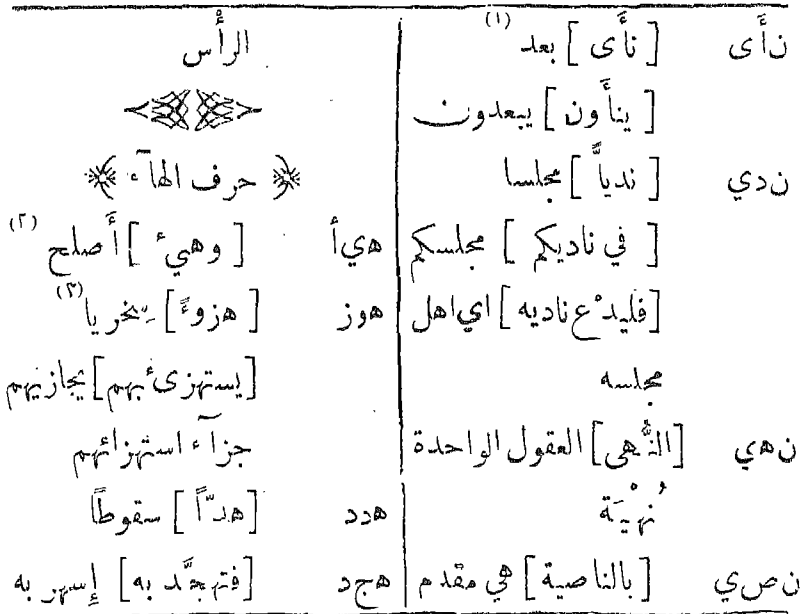 نأى [نأَى] بعد (١)
[ينأَون] يبعدون
ندي [نديّاً] مجلسا
[في ناديكم] مجلسكم
[فليدْع ناديه] اي اهل
مجلسه
نهي [النُّهى] العقول الواحدة
نُهْيَة
نصي [بالناصية] هي مقدم
الرأْس
حرف الهآء
هيأ [وهيء] أَصلح (٢)
هوز [هزوءًا] سِخريا (٣)
[يستهزئ بهم] يجازيهم
جزآء استهزائهم
هدد [هدّاً] سقوطاً
هجد [فتهجَّد به] إِسهر به